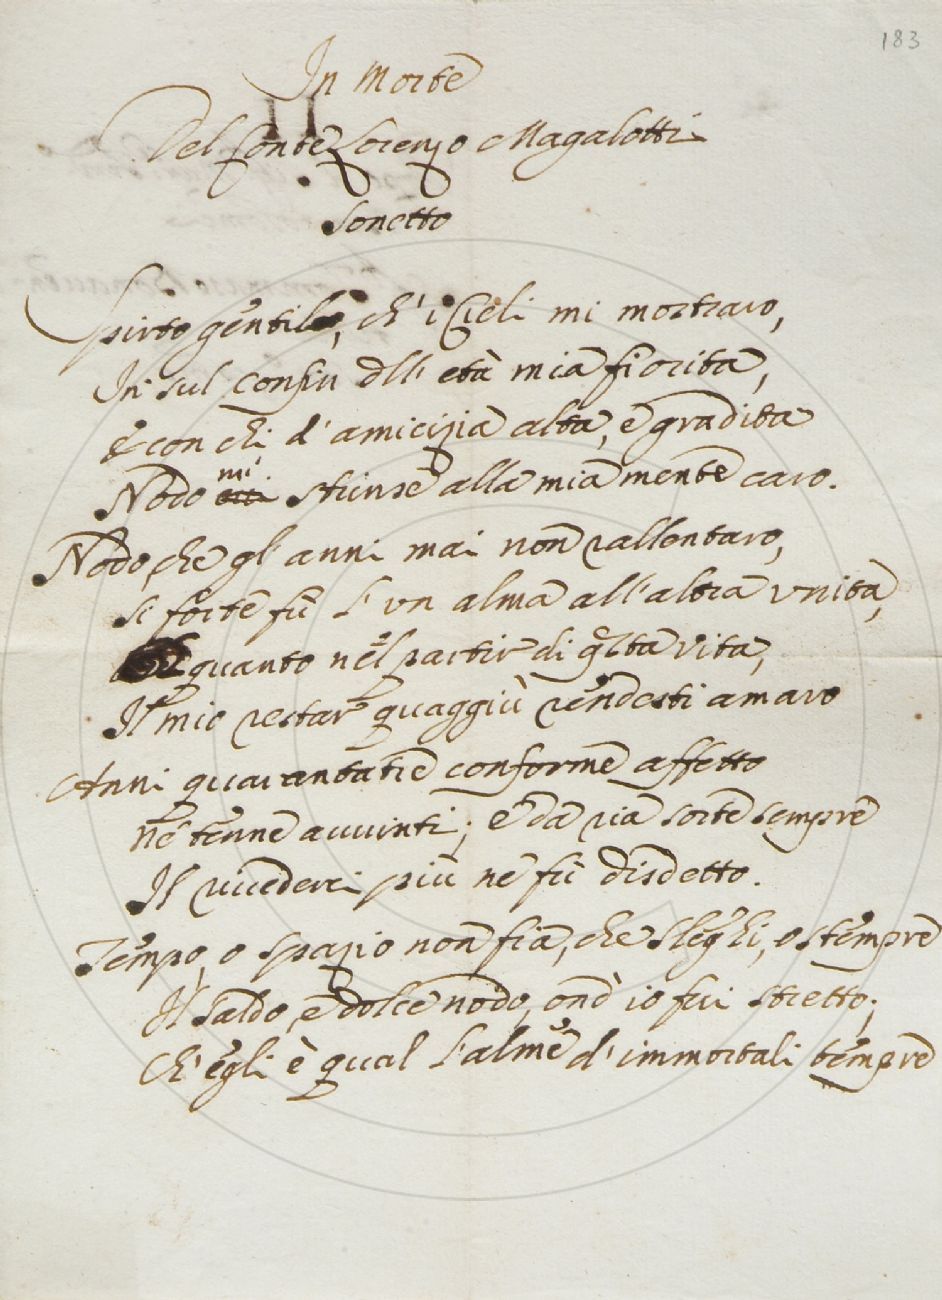 183
In Morte
Del Conte Lorenzo Magalotti
Sonetto
Spirto gentile, ch' i Cieli mi mostraro,
In sul confin dell' età mia fiorita,
E con chi d' amicizia alta, e gradita
Nodo mi strinse alla mia mente caro.
Nodo, che gl' anni mai non rallentaro,
Si forte fù l' un alma all' altra unita,
quanto nel partir di qsta vita,
Il mio restar quaggiù rendesti amaro
Anni quarantatre conforme affetto
Ne tenne avvinti; e da ria sorte sempre
Il vicederci più ne fù disdetto.
Tempo, o spazio non fia, che sleghi, o stempre
Il saldo, e dolce nodo, ond' io fui stretto;
Ch' egli è qual l' alme d' immortali tempre